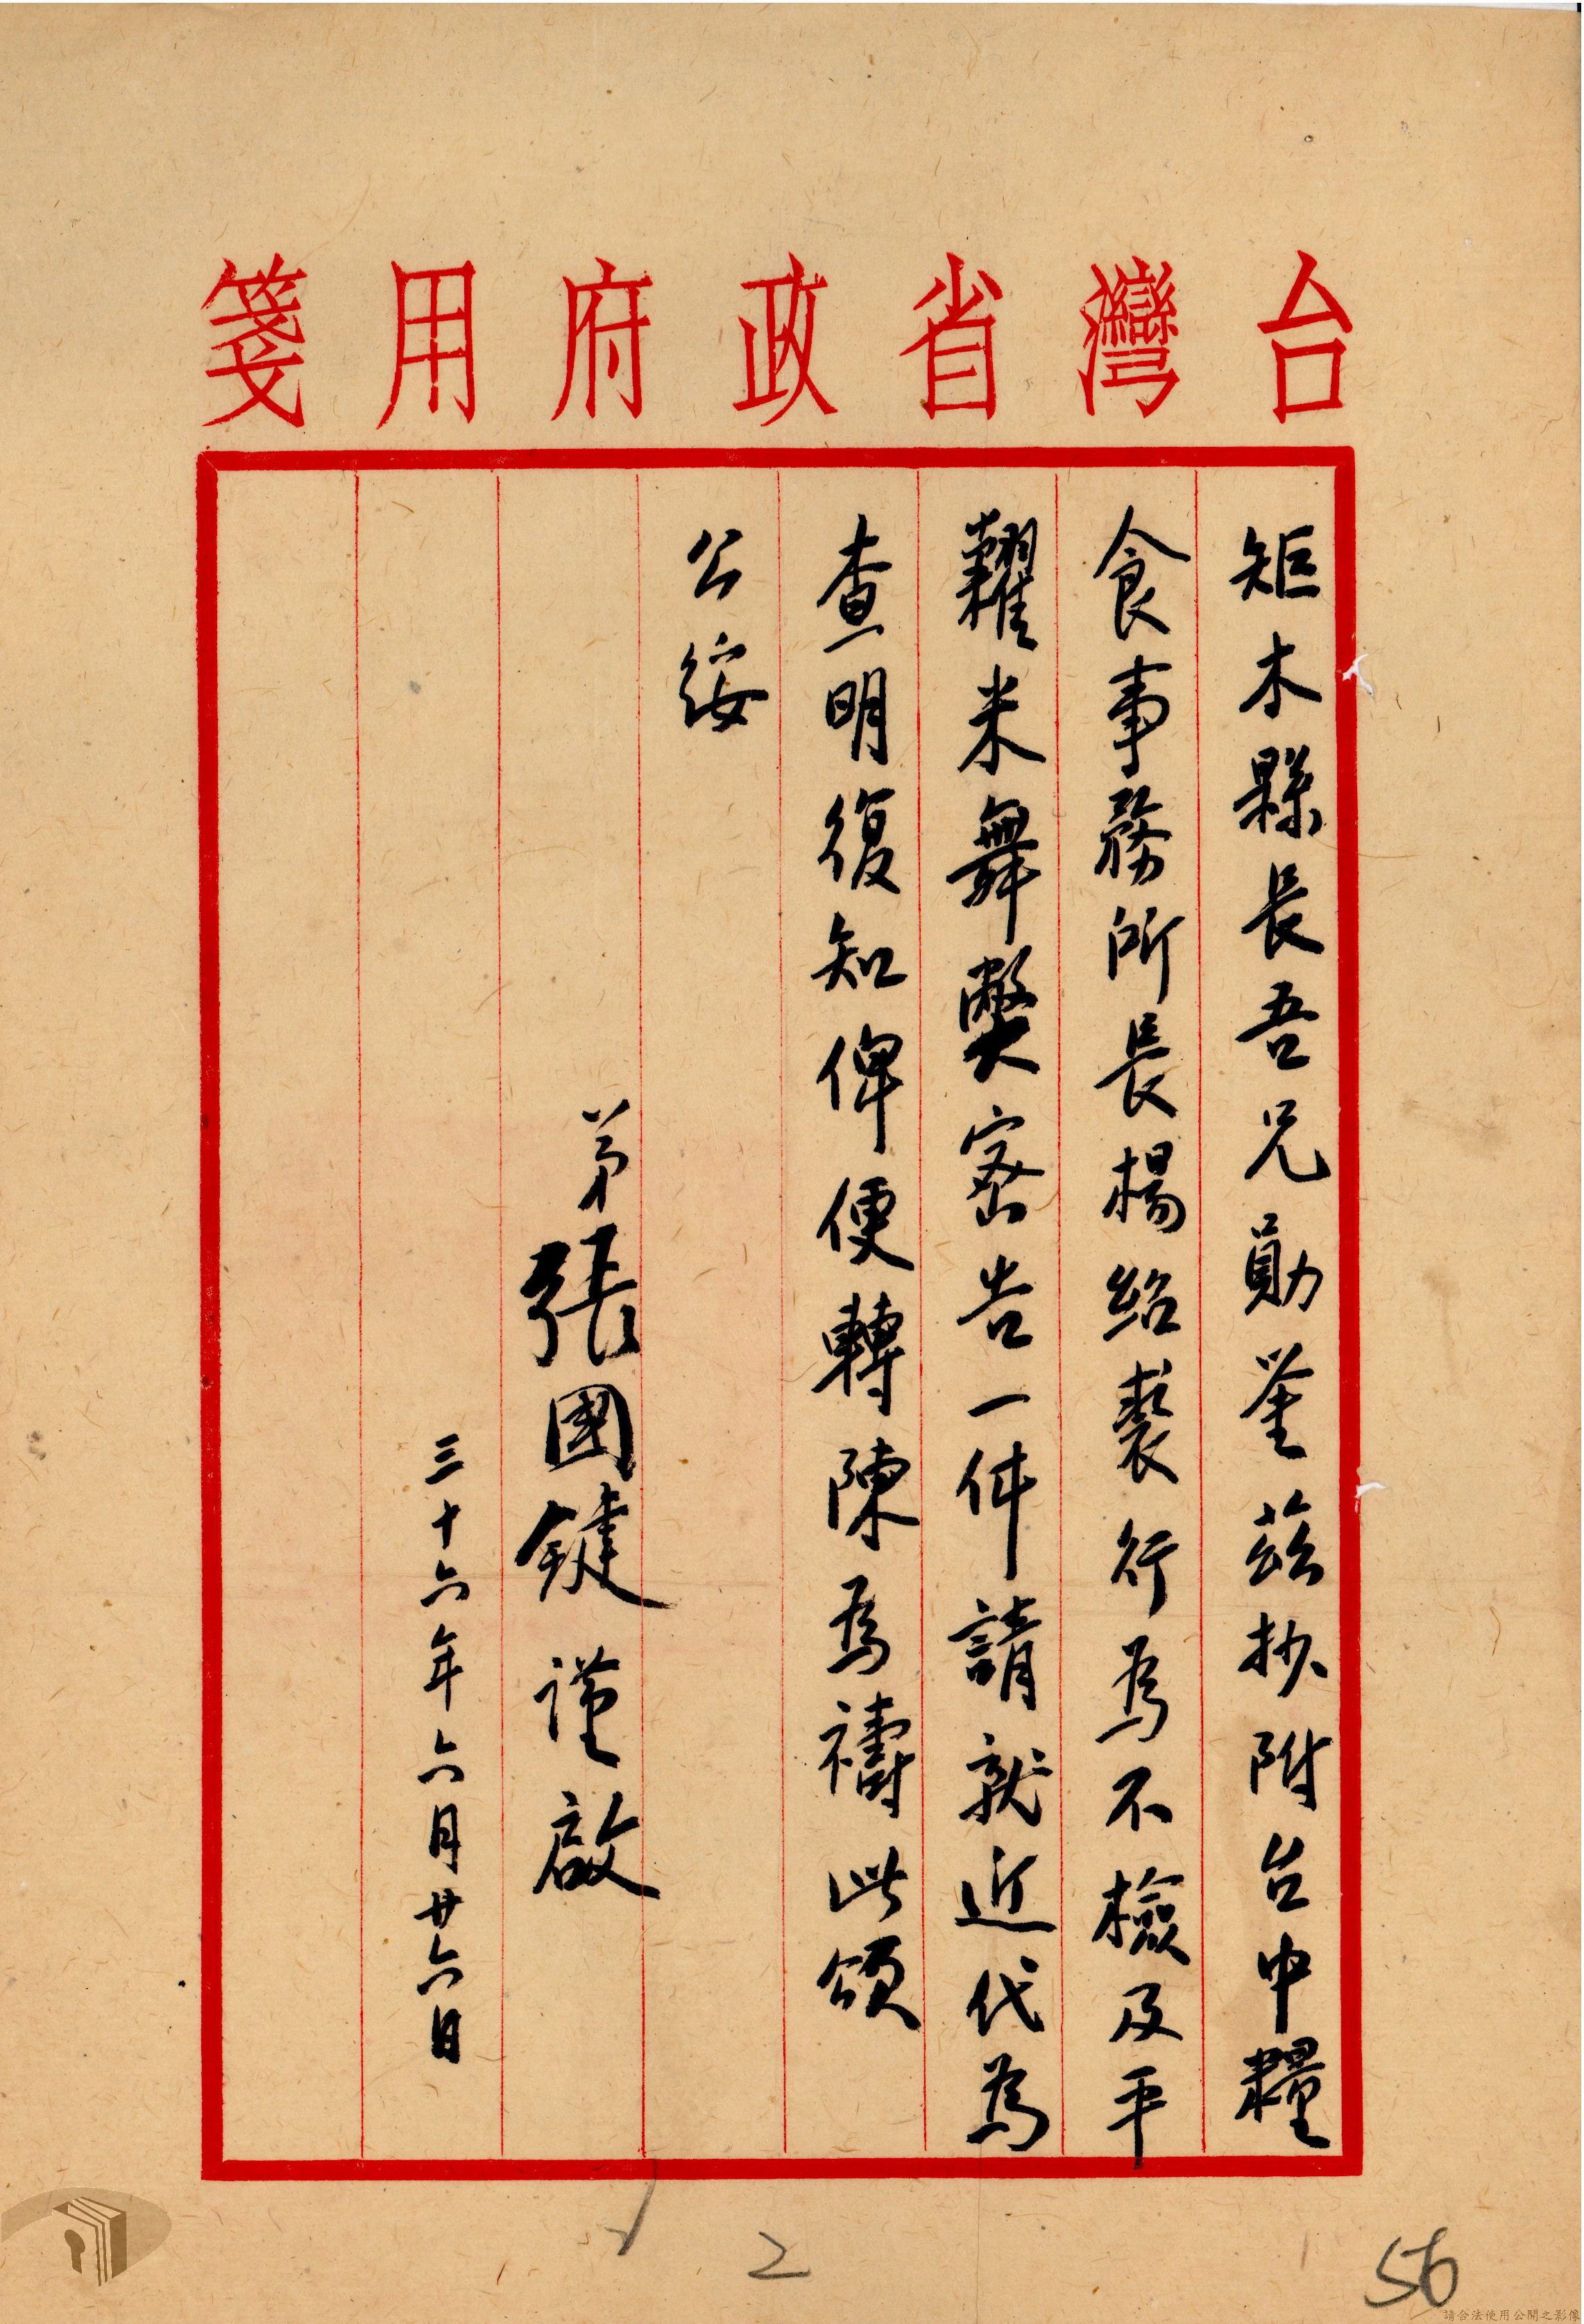 台灣省政府用箋
矩木縣長吾兄勛鑒茲抄附台中糧
食事務所長楊紹裘行為不檢及平
糶米舞弊密告一件請就近代為
查明復知俾便轉陳為禱此頌
公綏
弟張國鍵謹啟
三十六年六月廿六日
2
56
請合法使用公開之影像